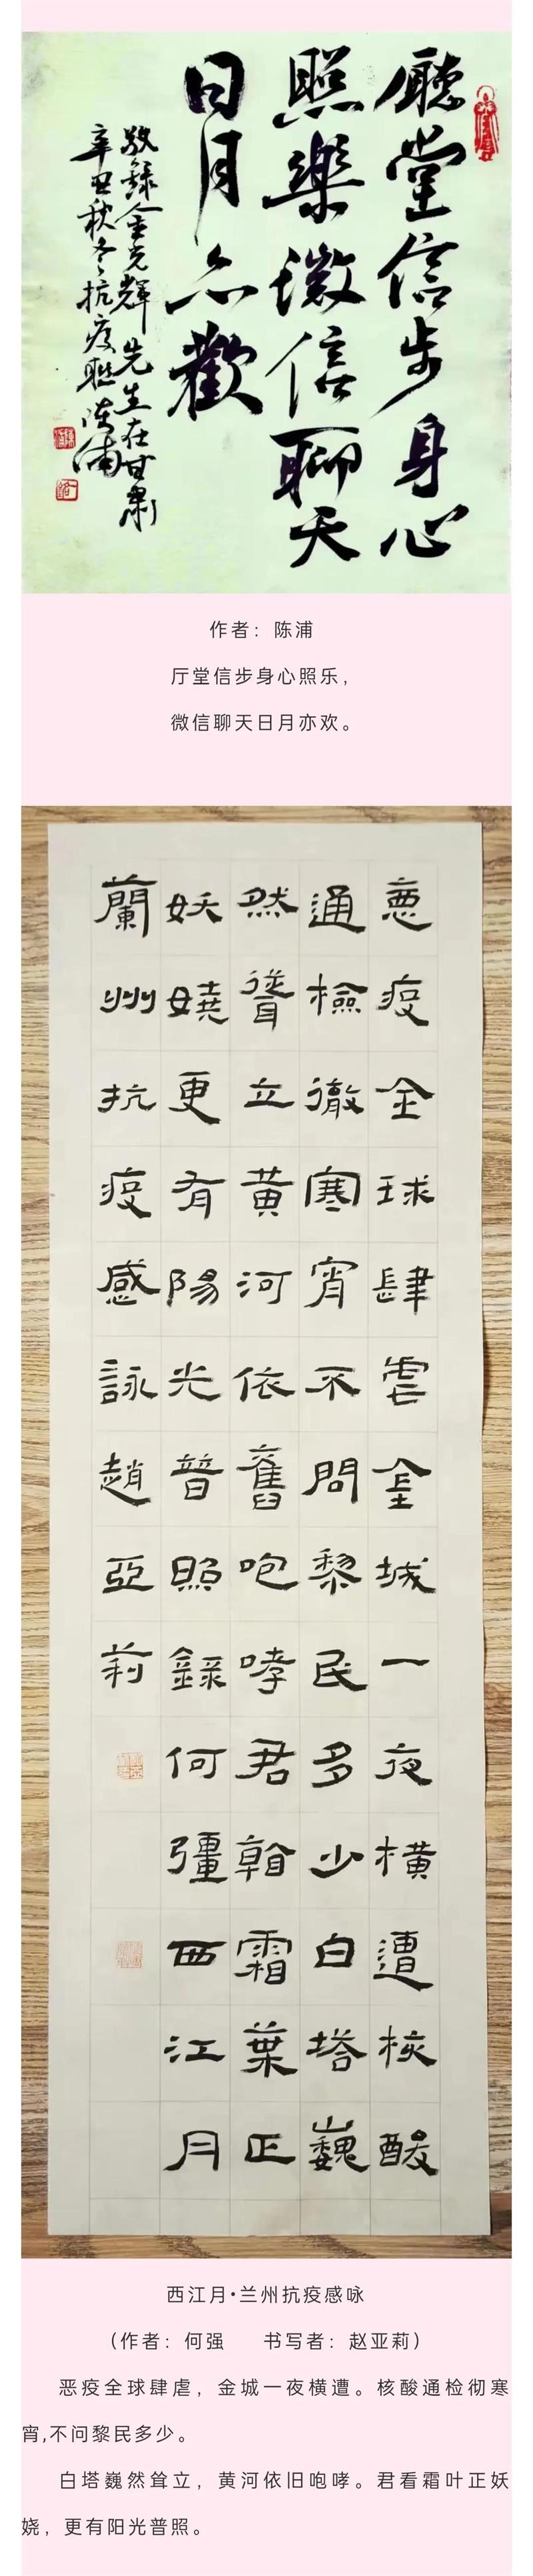 廳堂信步身心
照樂微信聊天
日月亦歡
敬錄金光輝先生在甘肅
辛丑秋冬抗疫聯陳浦
作者：陈浦
厅堂信步身心照乐，
微信聊天日月亦欢。
惡疫全球肆虐金城一夜橫遭核酸
通檢徹寒宵不問黎民多少白塔巍
然聳立黃河依舊咆哮君看霜葉正
妖嬈更有陽光普照錄何彊西江月
蘭州抗疫感詠趙亞莉
西江月•兰州抗疫感咏
（作者：何强　书写者：赵亚莉）
恶疫全球肆虐，金城一夜横遭。核酸通检彻寒
宵,不问黎民多少。
白塔巍然耸立，黄河依旧咆哮。君看霜叶正妖
娆，更有阳光普照。